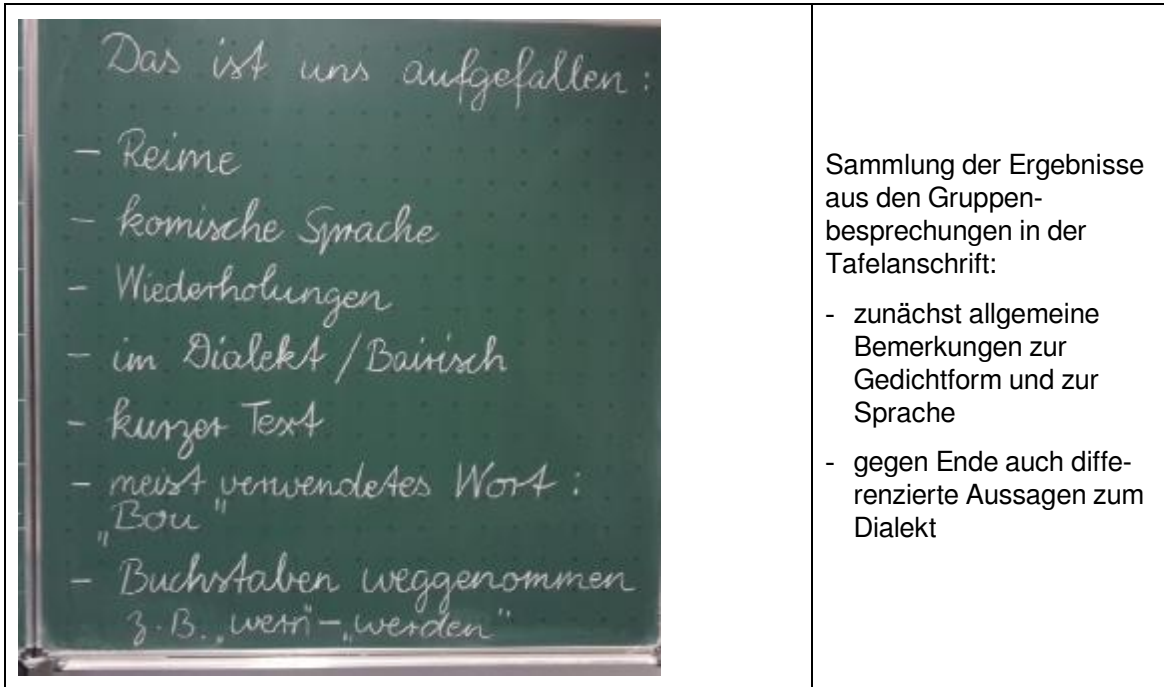 Das ist uns aufgefallen:
- Reime
- komische Sprache
- Wiederholungen
- im Dialekt / Bairisch
- kurzer Text
- meist verwendetes Wort:
„Bou"
- Buchstaben weggenommen
z.B. „wern" – „werden"
Sammlung der Ergebnisse
aus den Gruppen-
besprechungen in der
Tafelanschrift:
- zunächst allgemeine
Bemerkungen zur
Gedichtform und zur
Sprache
- gegen Ende auch diffe-
renzierte Aussagen zum
Dialekt